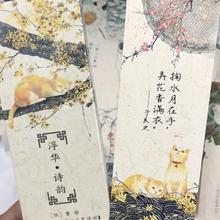 浮华·诗韵
掬水月在手，
弄花香满衣。
——于良史